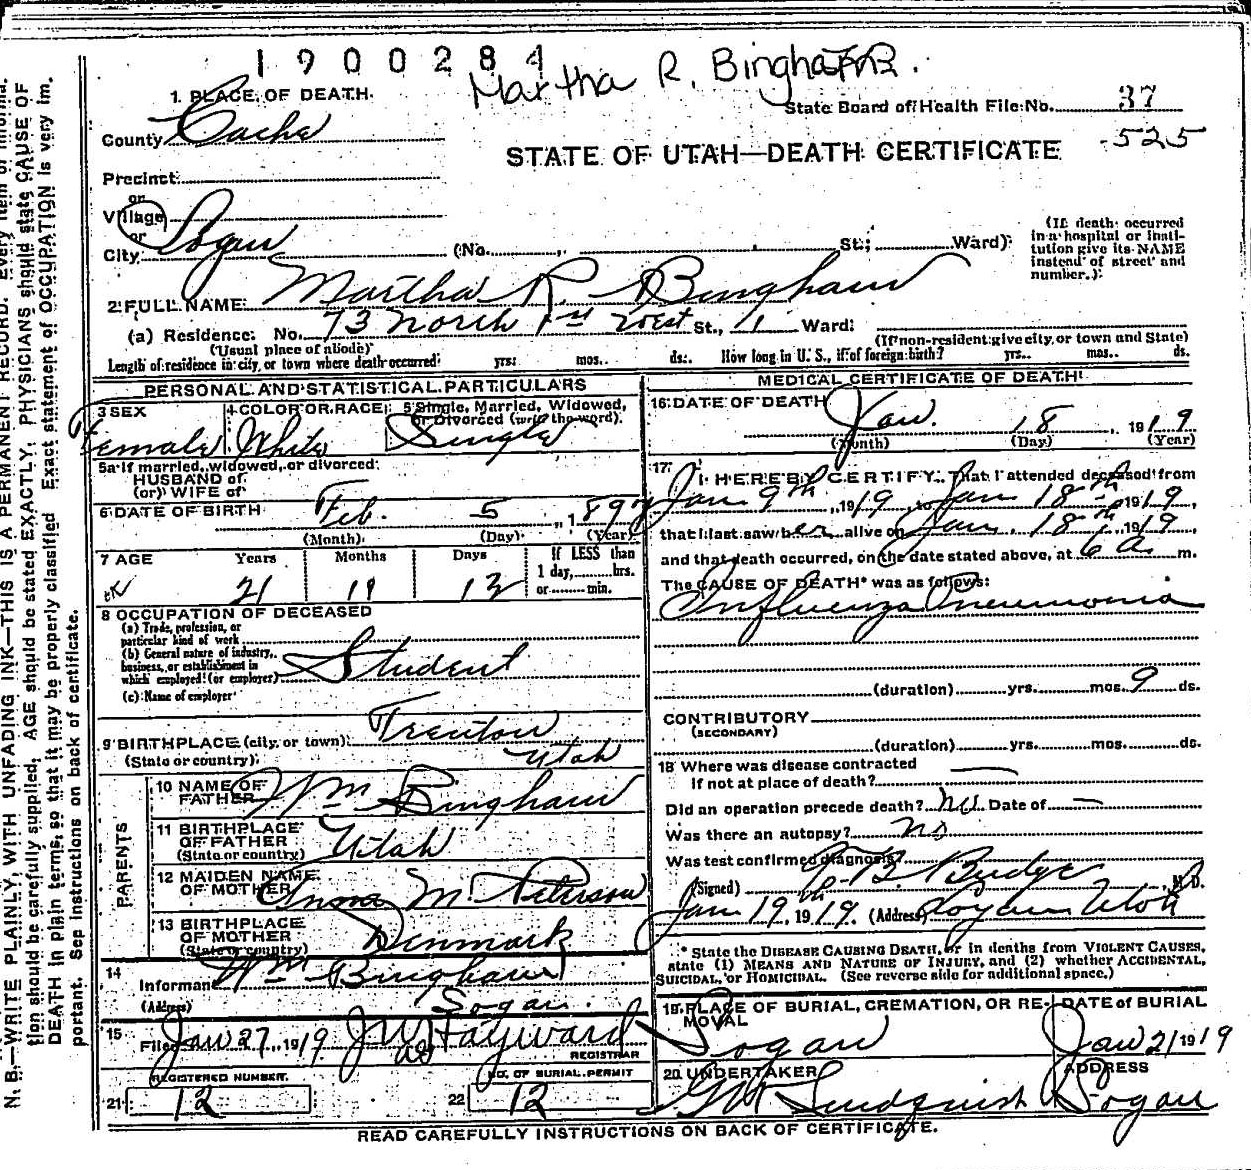 1900284
Martha R. Bingham
1. PLACE OF DEATH.
State Board of Health File No. 37
County Cache
-525
STATE OF UTAH—DEATH CERTIFICATE
Precinct
or
Village
or
City Logan (No. St.; Ward)
(If death occurred
in a hospital or insti-
tution give its NAME
instead of street and
number.)
2 FULL NAME Martha R. Bingham
(a) Residence. No. 73 North 1st West St., 1 Ward.
(Usual place of abode) (If non-resident give city, or town and State)
Length of residence in city, or town where death occurred yrs. mos. ds. How long in U. S., if of foreign birth? yrs. mos. ds.
PERSONAL AND STATISTICAL PARTICULARS
3 SEX 4 COLOR OR RACE 5 Single, Married, Widowed,
or Divorced (write the word).
Female White Single
5a If married, widowed, or divorced
HUSBAND of
(or) WIFE of
6 DATE OF BIRTH Feb. 5, 1897
(Month) (Day) (Year)
7 AGE Years Months Days If LESS than
1 day, hrs.
or min.
21 11 13
8 OCCUPATION OF DECEASED
(a) Trade, profession, or
particular kind of work
(b) General nature of industry,
business, or establishment in
which employed (or employer) Student
(c) Name of employer
9 BIRTHPLACE (city, or town) Trenton
(State or country) Utah
PARENTS
10 NAME OF
FATHER Wm Bingham
11 BIRTHPLACE
OF FATHER
(State or country) Utah
12 MAIDEN NAME
OF MOTHER Anna M. Peterson
13 BIRTHPLACE
OF MOTHER
(State or country) Denmark
14
Informant Wm Bingham
(Address) Logan
15
Filed Jan 27, 1919. J W Hayward
REGISTRAR
REGISTERED NUMBER. NO. OF BURIAL PERMIT
21 12 22 12
MEDICAL CERTIFICATE OF DEATH
16 DATE OF DEATH Jan. 18, 1919
(Month) (Day) (Year)
17 I HEREBY CERTIFY, That I attended deceased from
Jan 9th, 1919, to Jan 18th 1919,
that I last saw her alive on Jan. 18th, 1919,
and that death occurred, on the date stated above, at 6 a m.
The CAUSE OF DEATH* was as follows:
Influenza Pneumonia
(duration) yrs. mos. 9 ds.
CONTRIBUTORY
(SECONDARY)
(duration) yrs. mos. ds.
18 Where was disease contracted
if not at place of death? —
Did an operation precede death? No Date of —
Was there an autopsy? No
Was test confirmed diagnosis?
(Signed) Budge, M. D.
Jan 19th, 1919. (Address) Logan Utah
* State the DISEASE CAUSING DEATH, or in deaths from VIOLENT CAUSES,
state (1) MEANS AND NATURE OF INJURY, and (2) whether ACCIDENTAL,
SUICIDAL, or HOMICIDAL. (See reverse side for additional space.)
19 PLACE OF BURIAL, CREMATION, OR RE-
MOVAL Logan
DATE of BURIAL
Jan 21 1919
20 UNDERTAKER ADDRESS
G W Lindquist Logan
READ CAREFULLY INSTRUCTIONS ON BACK OF CERTIFICATE.
N. B.—WRITE PLAINLY, WITH UNFADING INK—THIS IS A PERMANENT RECORD. Every item of informa-
tion should be carefully supplied. AGE should be stated EXACTLY. PHYSICIANS should state CAUSE OF
DEATH in plain terms, so that it may be properly classified. Exact statement of OCCUPATION is very im-
portant. See instructions on back of certificate.